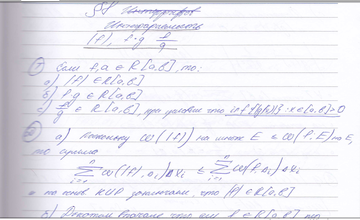 §4
Интегрируемость
|f|, f·g, f/g
① Если f, g ∈ R[a,b], то:
а) |f| ∈ R[a,b]
б) f g ∈ R[a,b]
в) f/g ∈ R[a,b], при условии что inf{|g(x)|: x ∈ [a,b]} > 0
а) Поскольку ω(|f|) на множ E ≤ ω(f, E) на E,
то
∑ ω(|f|, Δi) Δxi ≤ ∑ ω(f, Δi) Δxi
и по КИР заключаем что |f| ∈ R[a,b]
б) Докажем вначале что если f ∈ R[a,b] то